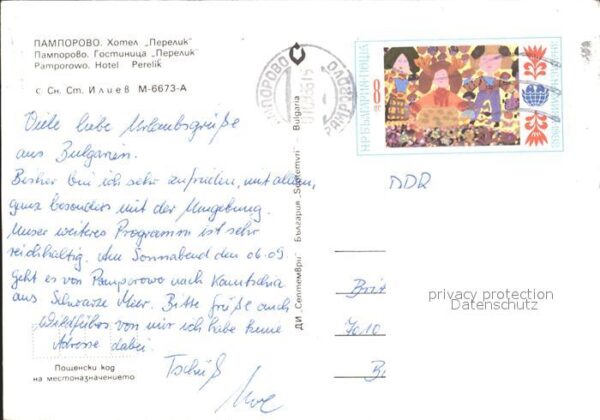 ПАМПОРОВО. Хотел „Перелик"
Пампорово. Гостиница „Перелик"
Pamporowo. Hotel Perelik
с Сн. Ст. Илиев М-6673-А
Viele liebe Urlaubsgrüße
aus Bulgarien.
Bisher bin ich sehr zufrieden, mit allem,
ganz besonders mit der Umgebung.
Unser weiteres Programm ist sehr
reichhaltig. Am Sonnabend den 06.09
geht es von Pamporowo nach Kamtschia
ans Schwarze Meer. Bitte grüße auch
von mir ich habe keine
Adresse dabei.
Tschüß
Пощенски код
на местоназначението
ДИ „Септември" България · Septemvri Bulgaria
ПАМПОРОВО
PAMPOROVO
НР БЪЛГАРИЯ ПОЩА
8
DDR
7010
privacy protection
Datenschutz